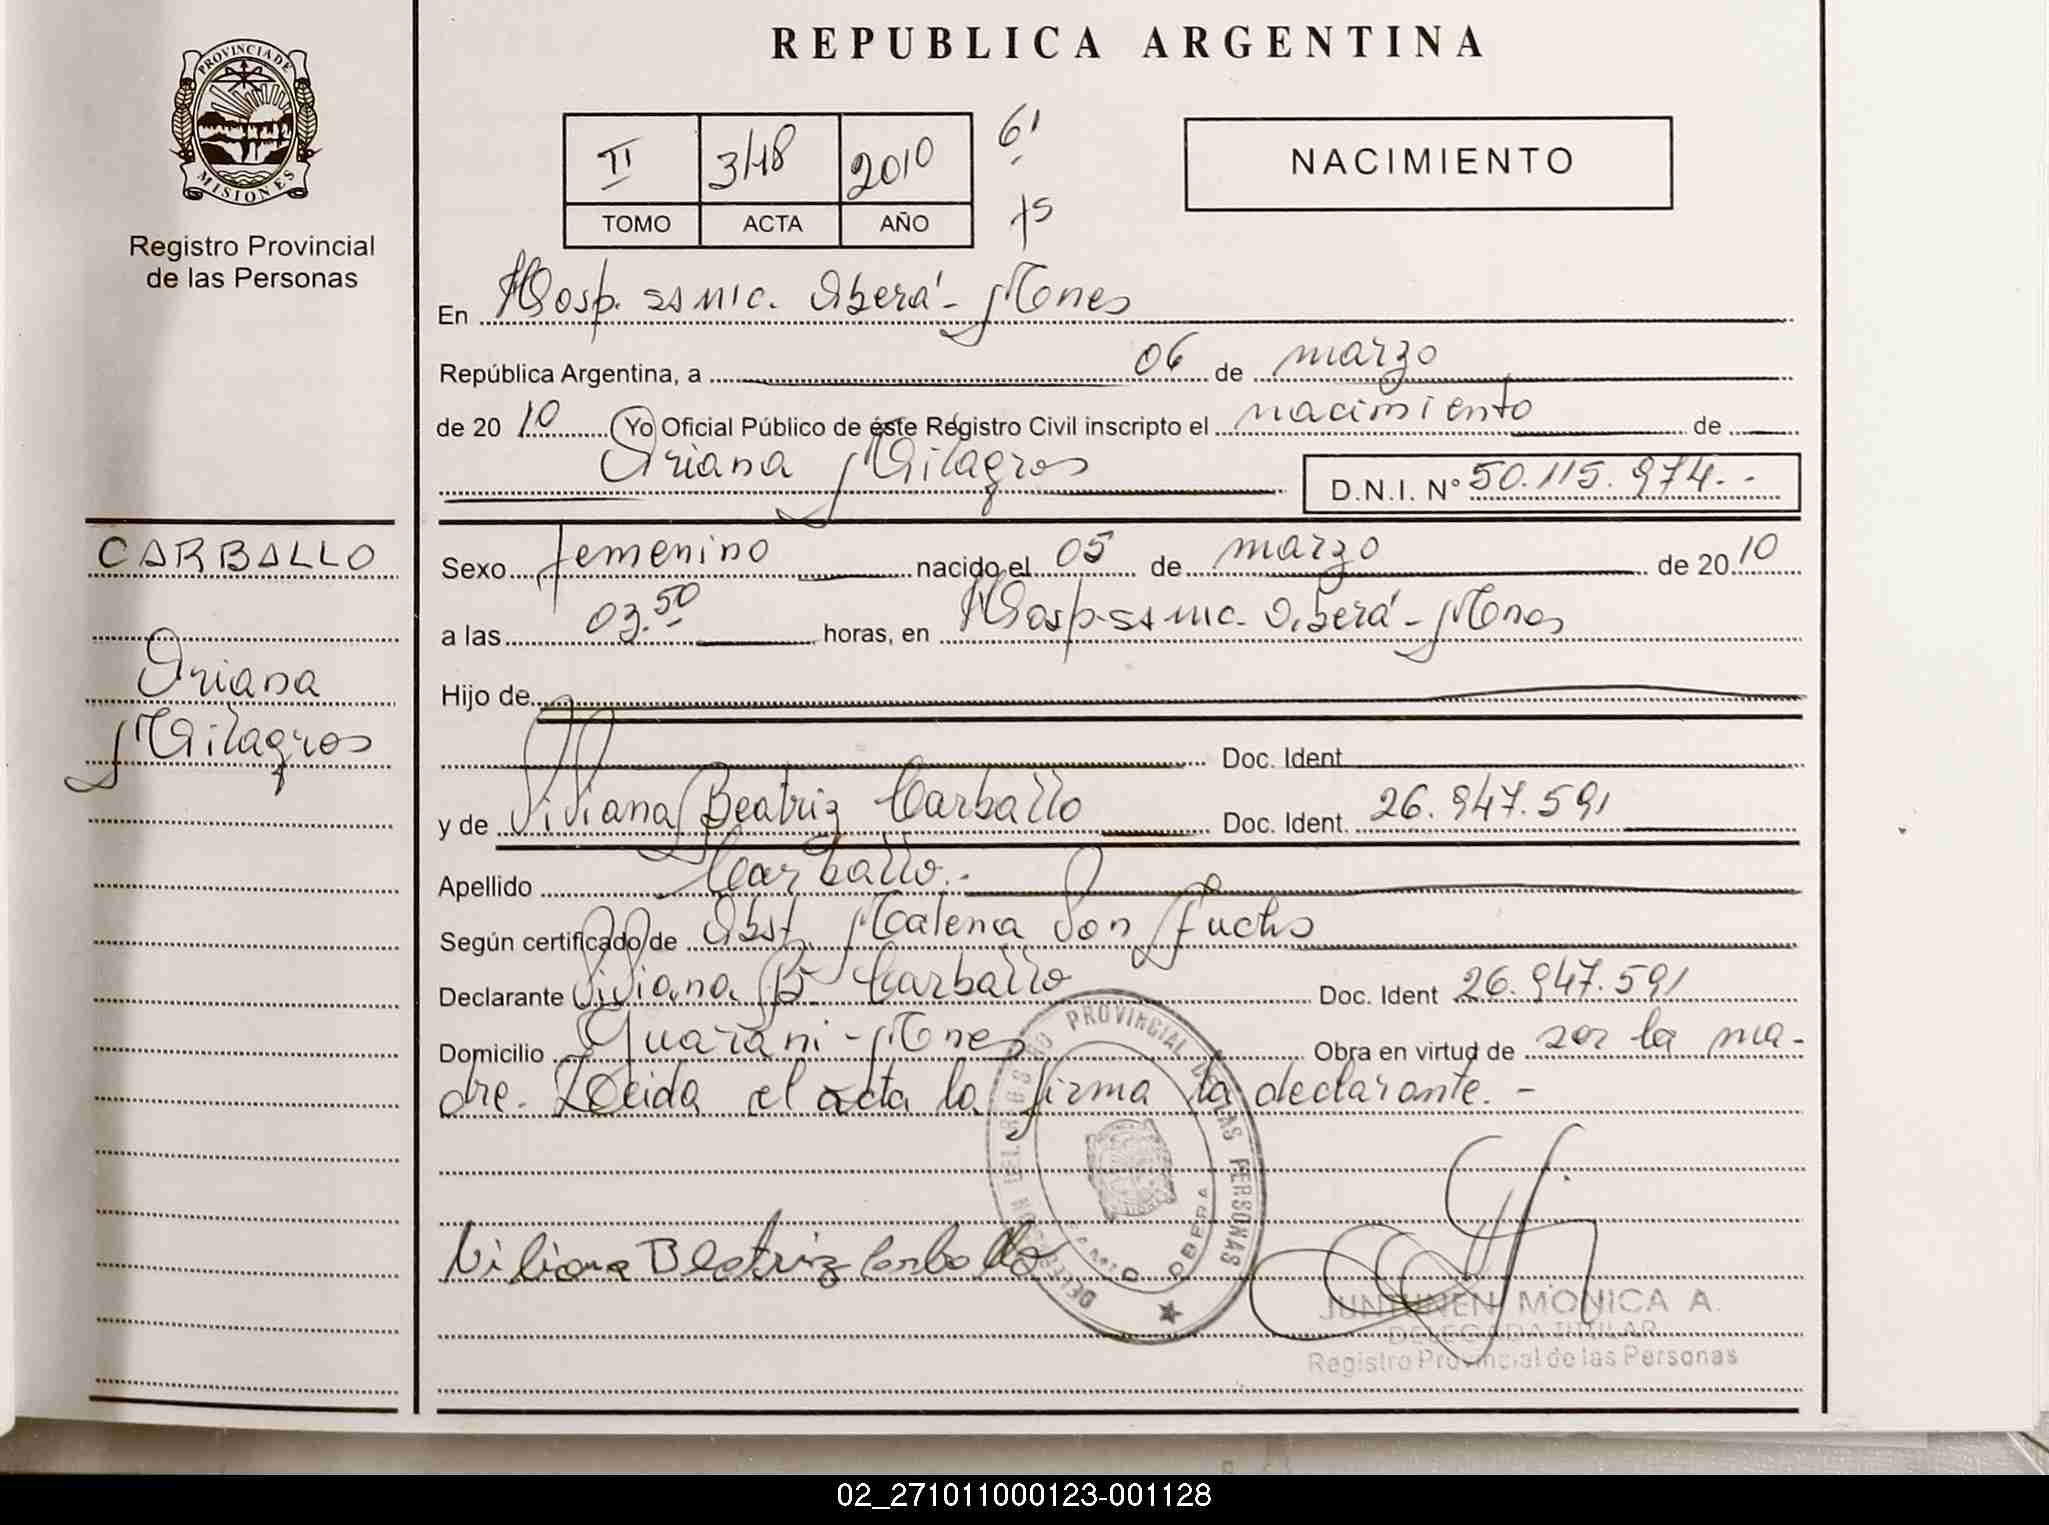 REPUBLICA ARGENTINA
PROVINCIA DE
MISIONES
Registro Provincial
de las Personas
II 3/48 2010
TOMO ACTA AÑO
61
75
NACIMIENTO
En Hosp. ss mic. Oberá - Mnes
República Argentina, a 06 de marzo
de 20 10 Yo Oficial Público de éste Registro Civil inscripto el nacimiento de
Oriana Milagros
D.N.I. Nº 50.115.974.-
CARBALLO
Oriana
Milagros
Sexo femenino nacido el 05 de marzo de 20 10
a las 03.50 horas, en Hosp. ss mic. Oberá - Mnes
Hijo de
Doc. Ident
y de Viviana Beatriz Carballo Doc. Ident. 26.947.591
Apellido Carballo.-
Según certificado de Obst. Malena Von Fuchs
Declarante Viviana B. Carballo Doc. Ident 26.947.591
Domicilio Guarani - Mnes Obra en virtud de ser la ma-
dre. Leida el acta la firma la declarante.-
Viviana Beatriz Carballo
DELEGACION DEL REGISTRO PROVINCIAL DE LAS PERSONAS
OBERA
JUNTUNEN MONICA A.
DELEGADA TITULAR
Registro Provincial de las Personas
02_271011000123-001128